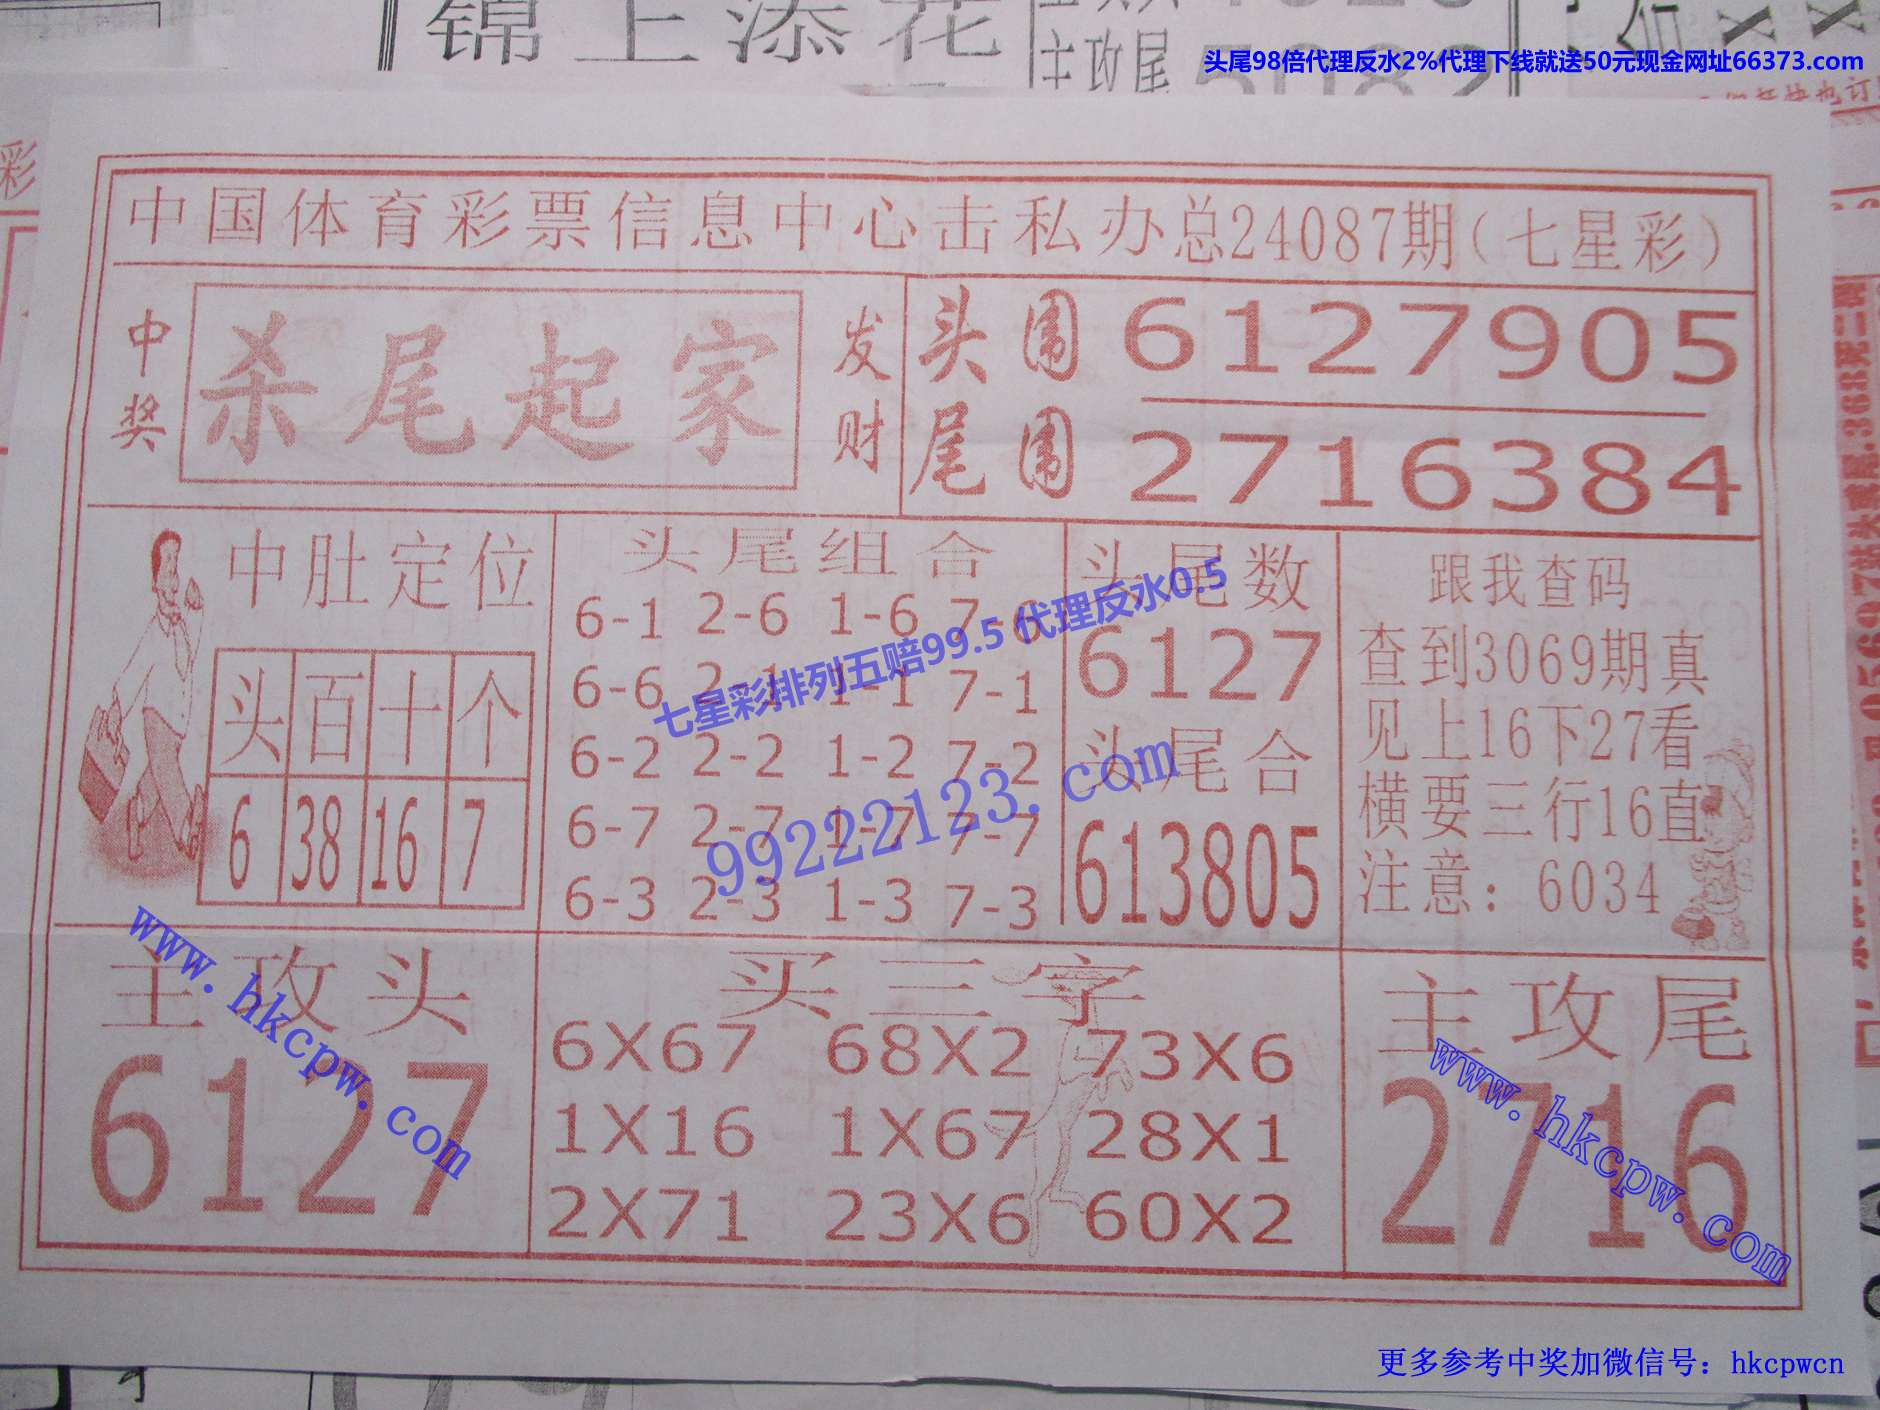 锦上添花
主攻尾
5082
头尾98倍代理反水2%代理下线就送50元现金网址66373.com
中国体育彩票信息中心击私办总24087期(七星彩)
中奖
杀尾起家
发财
头围 6127905
尾围 2716384
中肚定位
头 百 十 个
6 38 16 7
头尾组合
6-1 2-6 1-6 7-6
6-6 2-1 1-1 7-1
6-2 2-2 1-2 7-2
6-7 2-7 1-7 7-7
6-3 2-3 1-3 7-3
头尾数
6127
头尾合
613805
跟我查码
查到3069期真
见上16下27看
横要三行16直
注意：6034
七星彩排列五赔99.5 代理反水0.5
99222123.com
主攻头
6127
买三字
6X67 68X2 73X6
1X16 1X67 28X1
2X71 23X6 60X2
主攻尾
2716
www.hkcpw.com
www.hkcpw.com
更多参考中奖加微信号：hkcpwcn